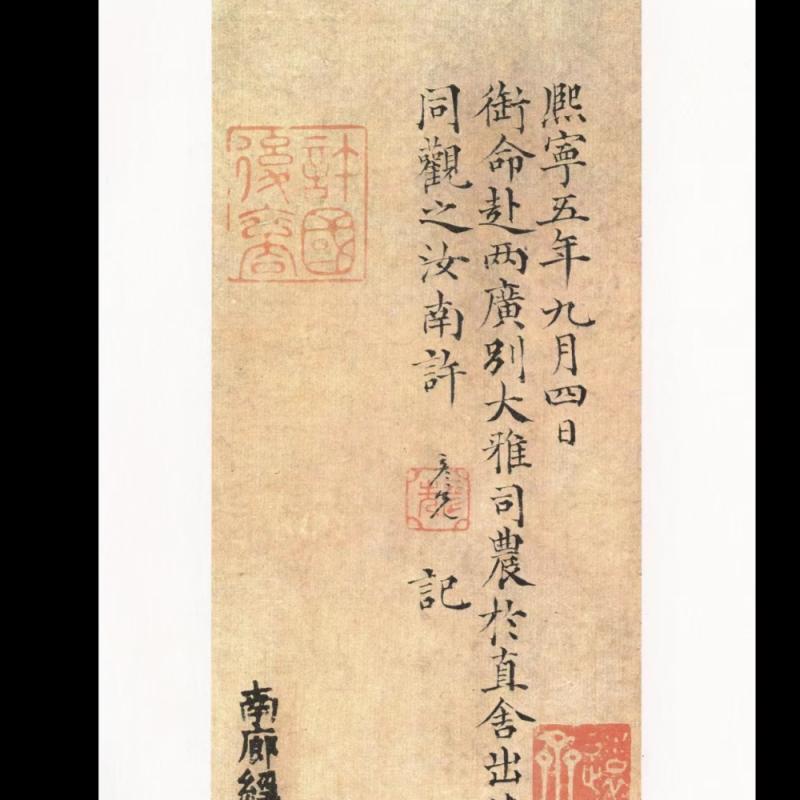 熙寧五年九月四日
銜命赴两廣別大雅司農於直舍出
同觀之汝南許彥先記
許國後裔
南廊